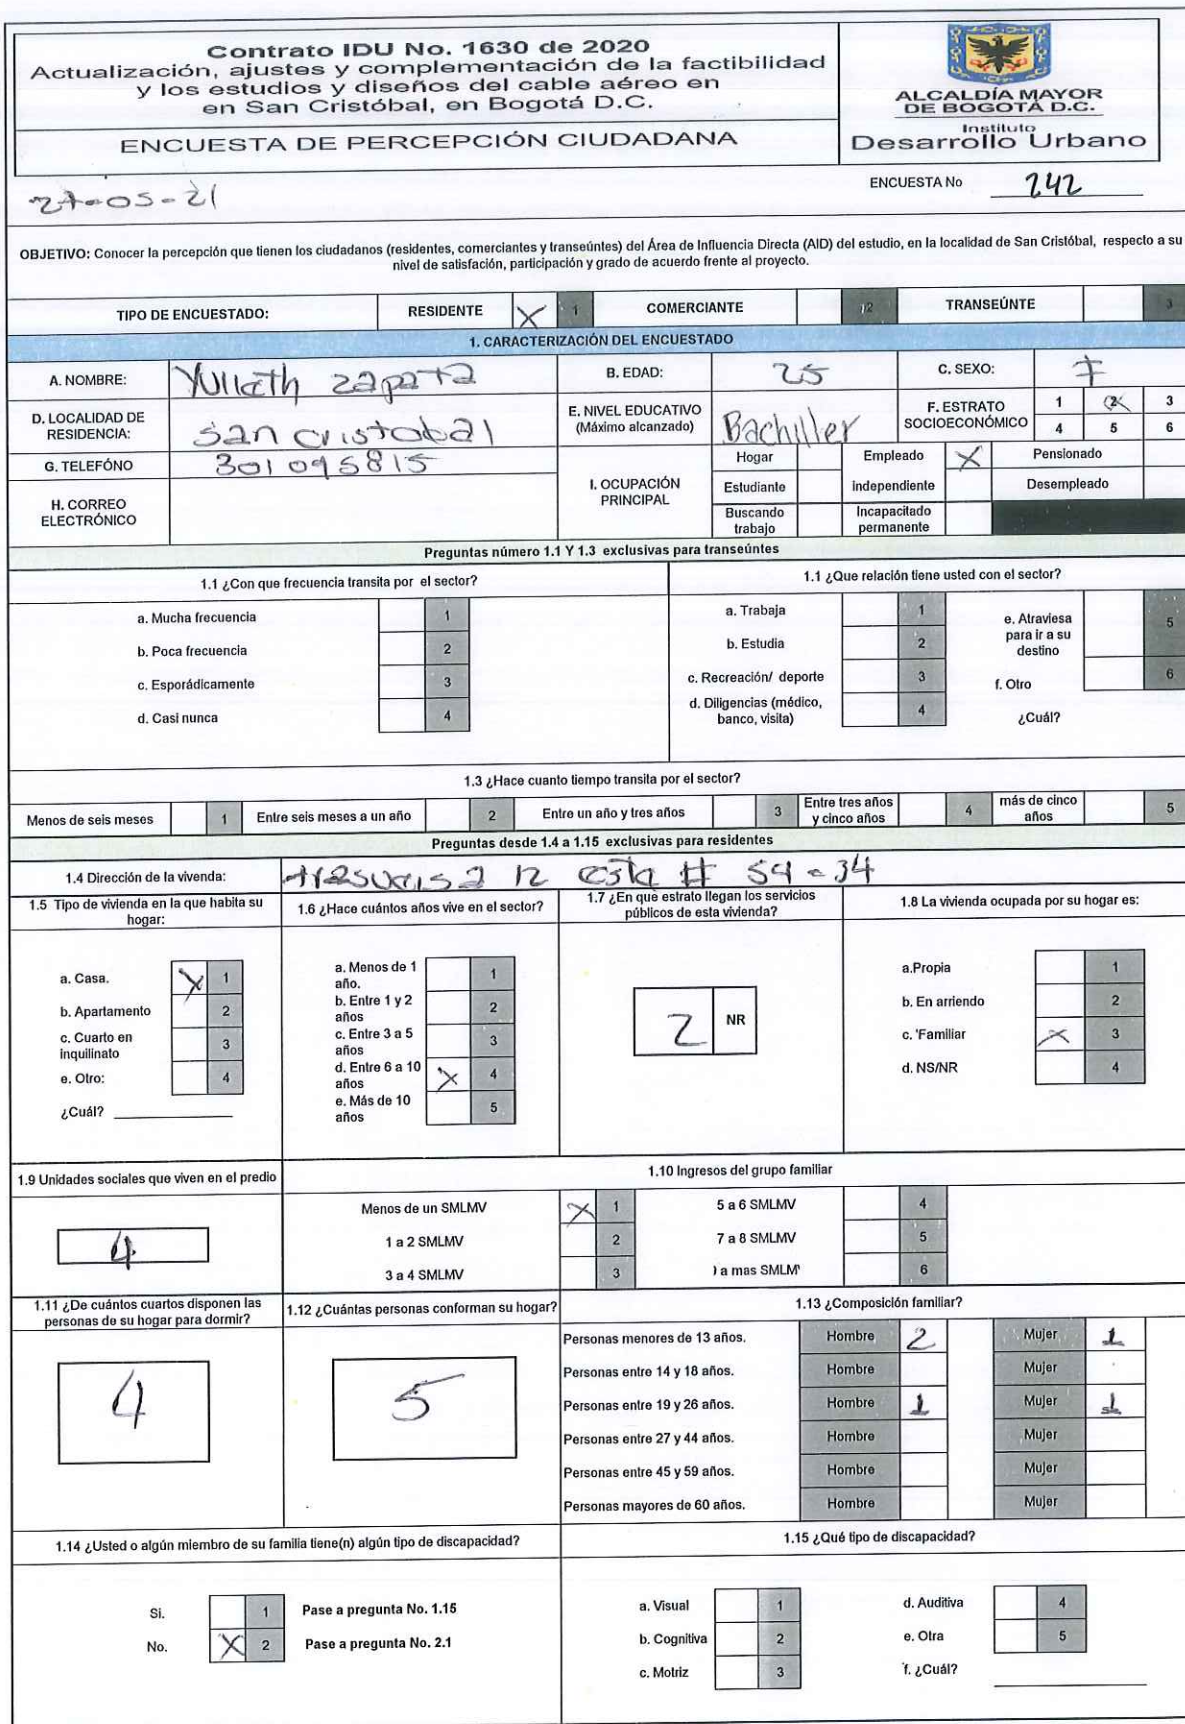 Contrato IDU No. 1630 de 2020
Actualización, ajustes y complementación de la factibilidad
y los estudios y diseños del cable aéreo en
en San Cristóbal, en Bogotá D.C.
ENCUESTA DE PERCEPCIÓN CIUDADANA
ALCALDÍA MAYOR
DE BOGOTÁ D.C.
Instituto
Desarrollo Urbano
27-05-21
ENCUESTA No 242
OBJETIVO: Conocer la percepción que tienen los ciudadanos (residentes, comerciantes y transeúntes) del Área de Influencia Directa (AID) del estudio, en la localidad de San Cristóbal, respecto a su
nivel de satisfacción, participación y grado de acuerdo frente al proyecto.
TIPO DE ENCUESTADO: RESIDENTE X 1 COMERCIANTE 2 TRANSEÚNTE 3
1. CARACTERIZACIÓN DEL ENCUESTADO
A. NOMBRE: zapata B. EDAD: 25 C. SEXO: F
D. LOCALIDAD DE
RESIDENCIA: San cristobal
E. NIVEL EDUCATIVO
(Máximo alcanzado) Bachiller
F. ESTRATO
SOCIOECONÓMICO
1 2 X 3
4 5 6
G. TELEFÓNO 301095815
H. CORREO
ELECTRÓNICO
I. OCUPACIÓN
PRINCIPAL
Hogar Empleado X Pensionado
Estudiante independiente Desempleado
Buscando
trabajo
Incapacitado
permanente
Preguntas número 1.1 Y 1.3 exclusivas para transeúntes
1.1 ¿Con que frecuencia transita por el sector?
a. Mucha frecuencia 1
b. Poca frecuencia 2
c. Esporádicamente 3
d. Casi nunca 4
1.1 ¿Que relación tiene usted con el sector?
a. Trabaja 1
b. Estudia 2
c. Recreación/ deporte 3
d. Diligencias (médico,
banco, visita) 4
e. Atraviesa
para ir a su
destino 5
f. Otro 6
¿Cuál?
1.3 ¿Hace cuanto tiempo transita por el sector?
Menos de seis meses 1 Entre seis meses a un año 2 Entre un año y tres años 3 Entre tres años
y cinco años 4 más de cinco
años 5
Preguntas desde 1.4 a 1.15 exclusivas para residentes
1.4 Dirección de la vivenda: 12 # 54-34
1.5 Tipo de vivienda en la que habita su
hogar:
a. Casa. X 1
b. Apartamento 2
c. Cuarto en
inquilinato 3
e. Otro: 4
¿Cuál?
1.6 ¿Hace cuántos años vive en el sector?
a. Menos de 1
año. 1
b. Entre 1 y 2
años 2
c. Entre 3 a 5
años 3
d. Entre 6 a 10
años X 4
e. Más de 10
años 5
1.7 ¿En que estrato llegan los servicios
públicos de esta vivienda?
2 NR
1.8 La vivienda ocupada por su hogar es:
a.Propia 1
b. En arriendo 2
c. 'Familiar X 3
d. NS/NR 4
1.9 Unidades sociales que viven en el predio
4
1.10 Ingresos del grupo familiar
Menos de un SMLMV X 1 5 a 6 SMLMV 4
1 a 2 SMLMV 2 7 a 8 SMLMV 5
3 a 4 SMLMV 3 a mas SMLM 6
1.11 ¿De cuántos cuartos disponen las
personas de su hogar para dormir?
4
1.12 ¿Cuántas personas conforman su hogar?
5
1.13 ¿Composición familiar?
Personas menores de 13 años. Hombre 2 Mujer 1
Personas entre 14 y 18 años. Hombre Mujer
Personas entre 19 y 26 años. Hombre 1 Mujer 1
Personas entre 27 y 44 años. Hombre Mujer
Personas entre 45 y 59 años. Hombre Mujer
Personas mayores de 60 años. Hombre Mujer
1.14 ¿Usted o algún miembro de su familia tiene(n) algún tipo de discapacidad?
Si. 1 Pase a pregunta No. 1.15
No. X 2 Pase a pregunta No. 2.1
1.15 ¿Qué tipo de discapacidad?
a. Visual 1 d. Auditiva 4
b. Cognitiva 2 e. Otra 5
c. Motriz 3 f. ¿Cuál?